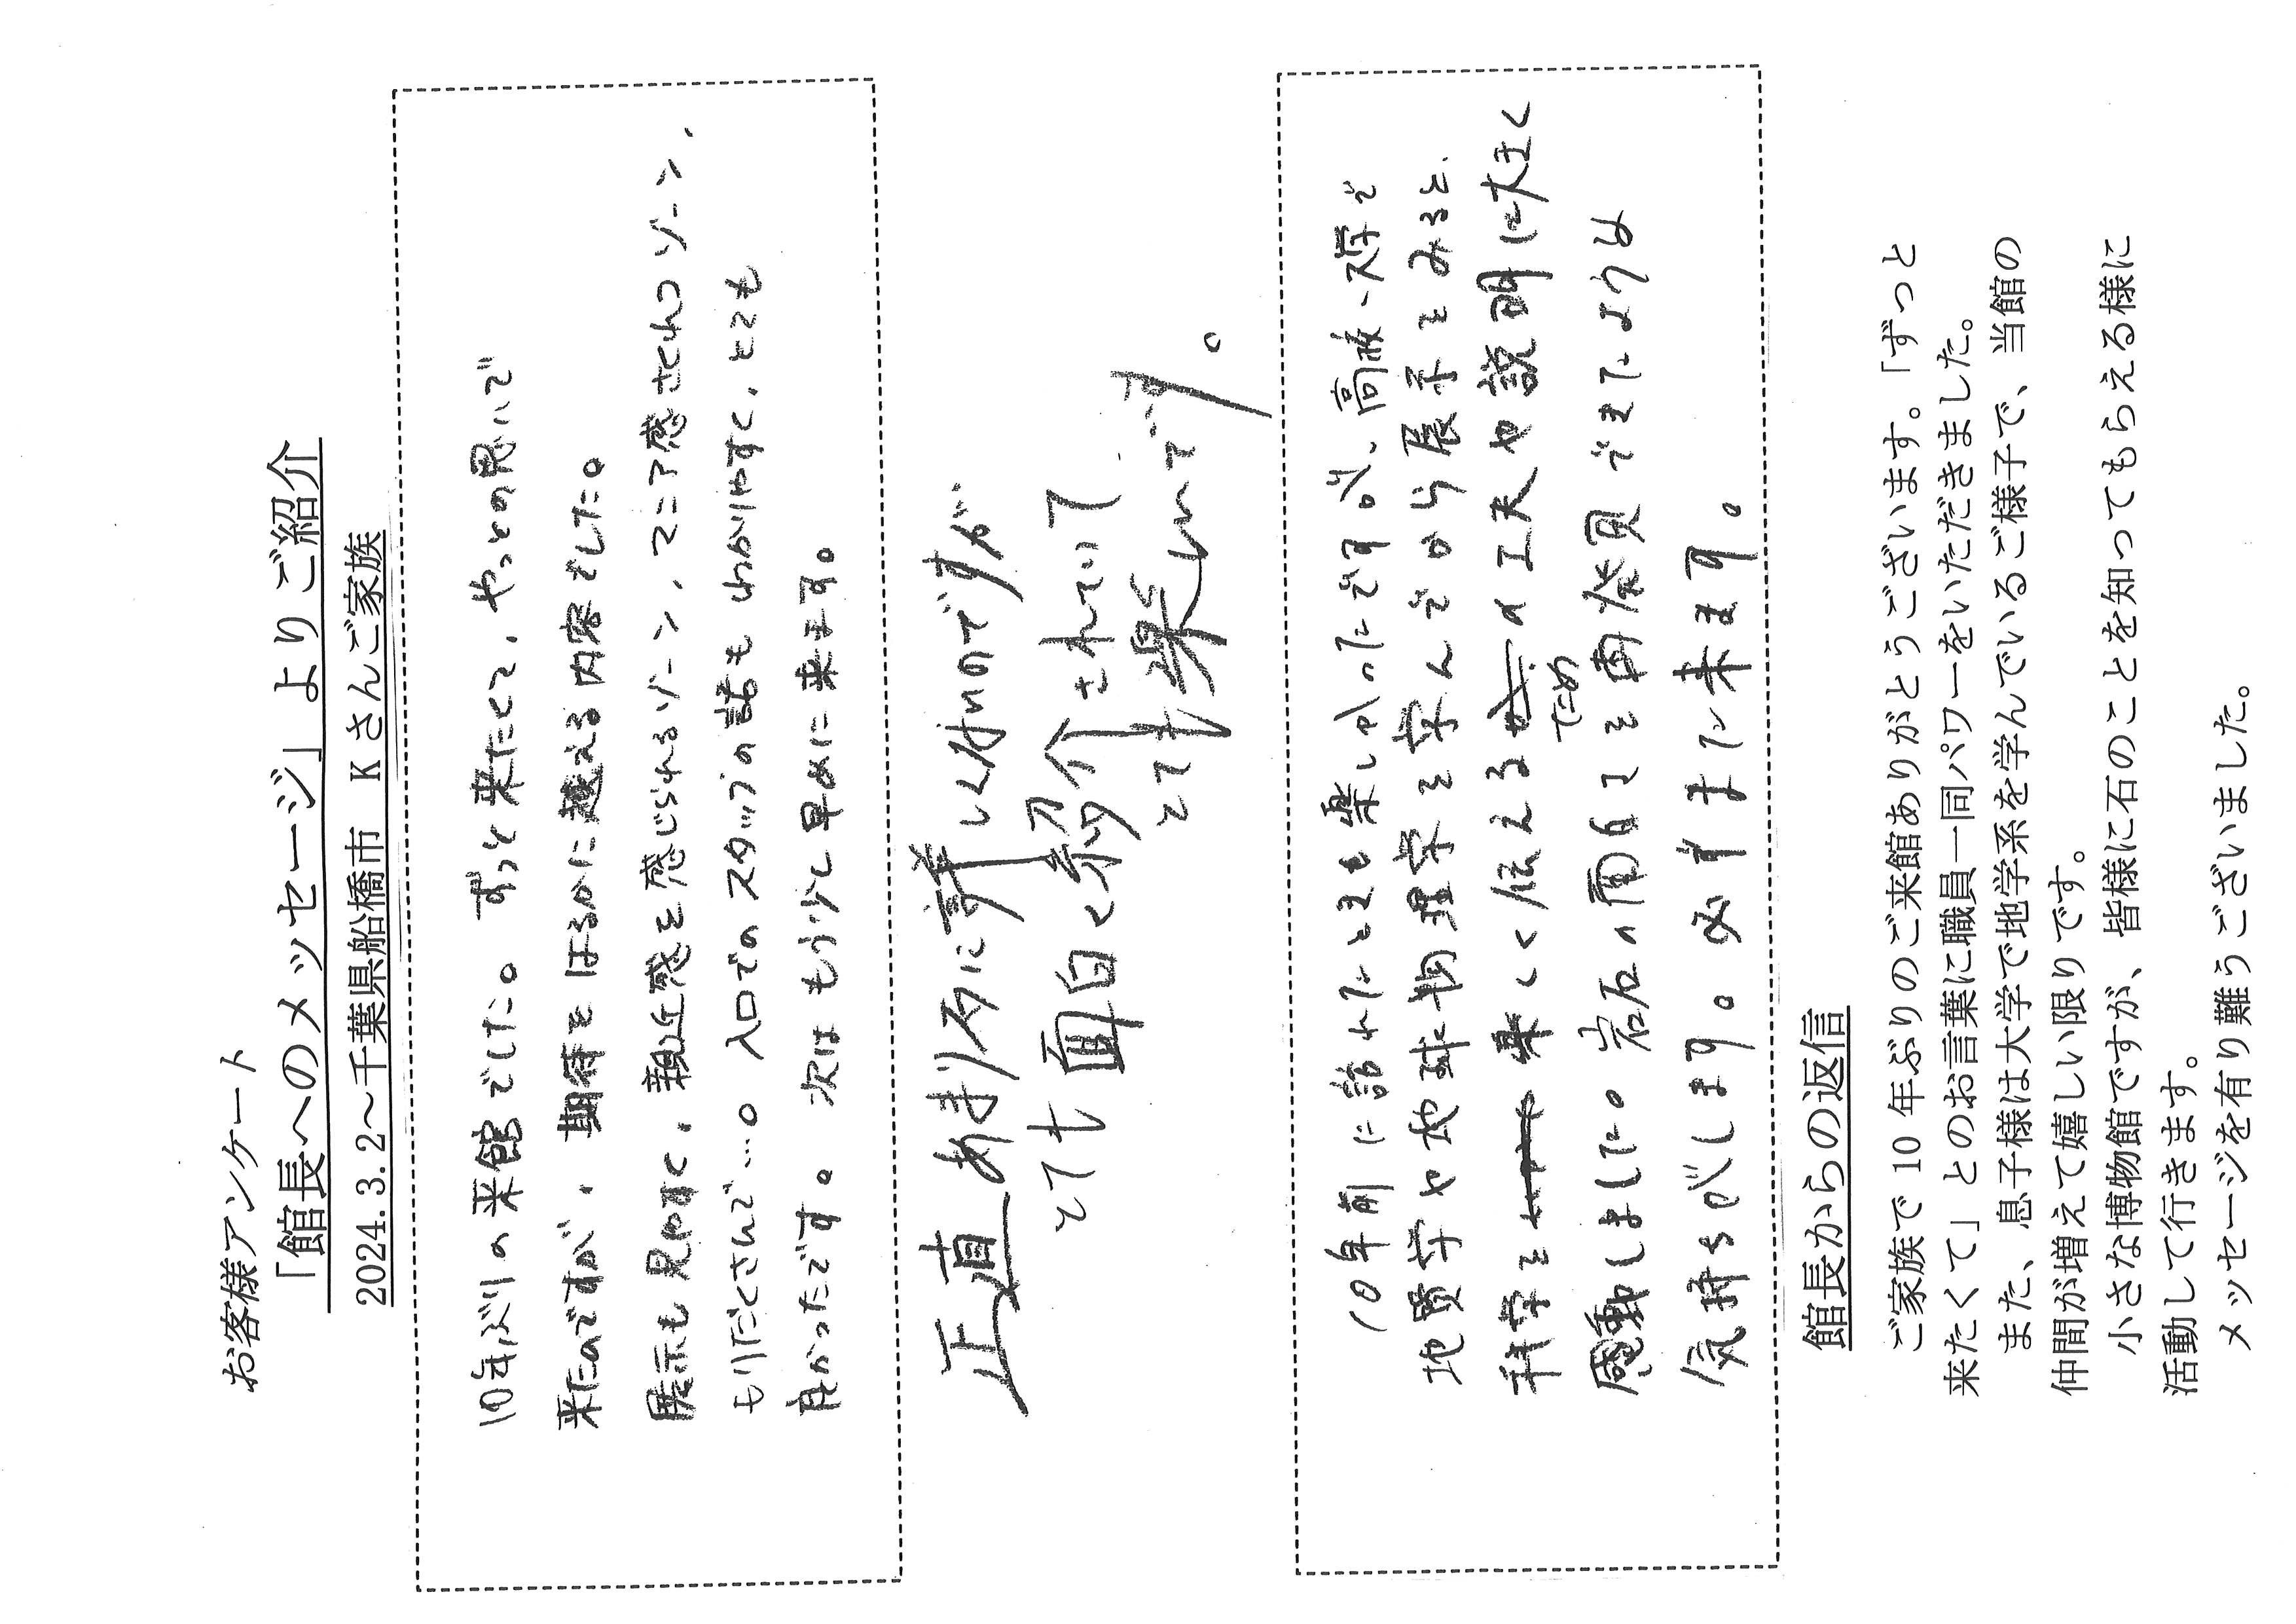 お客様アンケート
「館長へのメッセージ」よりご紹介
2024.3.2～千葉県船橋市　Kさんご家族
10年ぶりの来館でした。ずっと来たくて、やっとの思いで
来たのですが、期待をはるかに越える内容でした。
展示も見やすく、親近感を感じられるゾーン、マニア感さくれつゾーン、
もりだくさんで…。入口でのスタッフの話もわかりやすく、とても
良かったです。次はもう少し早めに来ます。
正直あまり石に詳しくないのですが
とても面白く紹介されていて
とても楽しいです。
10年前に訪れたときも楽しかったですが、高校、大学で
地質学や地球物理学を学んでから展示をみると、
科学を楽しく伝えるの工夫や説明に大きく
ため
感動しました。岩石の面白さを再発見できたような
気持ちがします。必ずまた来ます。
館長からの返信
ご家族で10年ぶりのご来館ありがとうございます。「ずっと
来たくて」とのお言葉に職員一同パワーをいただきました。
また、息子様は大学で地学系を学んでいるご様子で、当館の
仲間が増えて嬉しい限りです。
小さな博物館ですが、皆様に石のことを知ってもらえる様に
活動して行きます。
メッセージを有り難うございました。